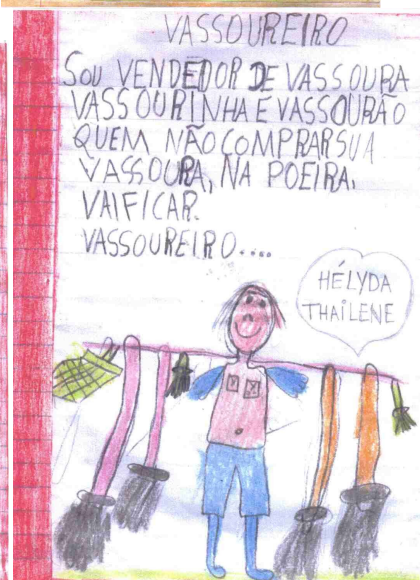 VASSOUREIRO
SOU VENDEDOR DE VASSOURA
VASSOURINHA E VASSOURÃO
QUEM NÃO COMPRAR SUA
VASSOURA, NA POEIRA.
VAI FICAR.
VASSOUREIRO....
HÉLYDA
THAILENE